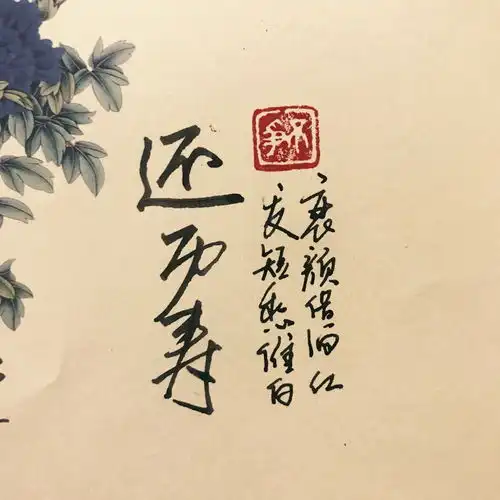 不争
衰颜借酒红
发短愁催白
还 寿